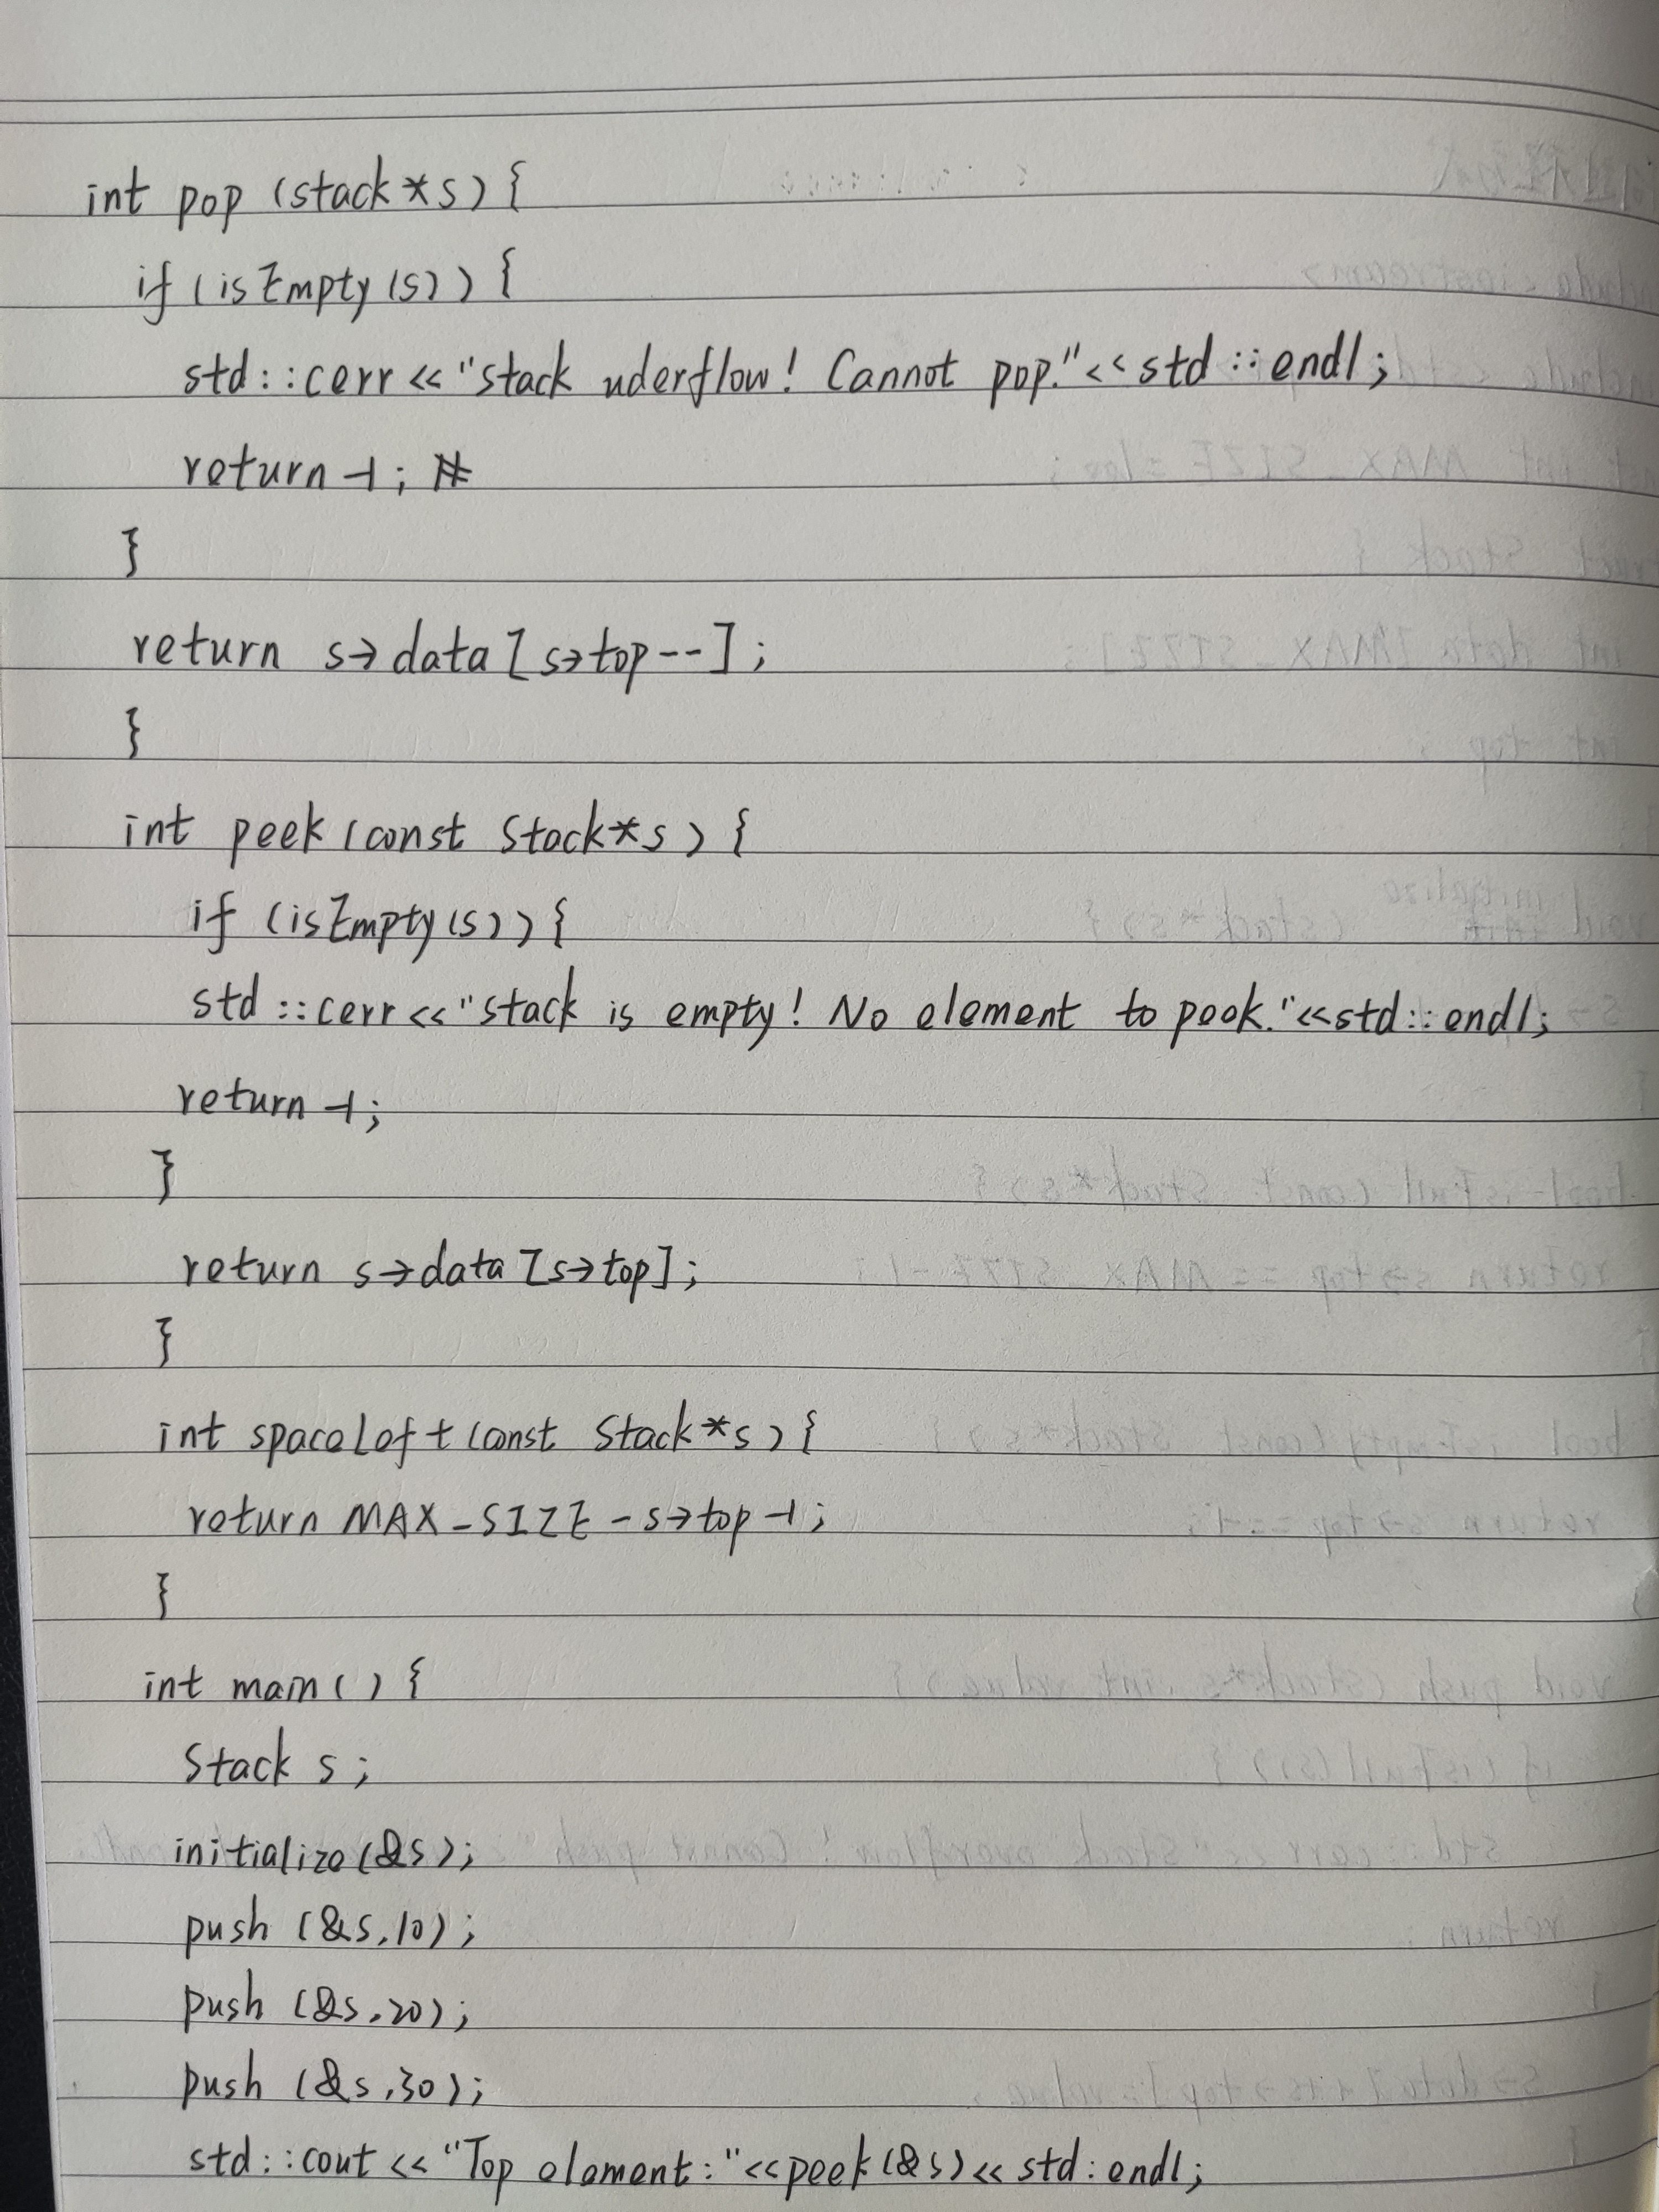 int pop (stack*s) {
if (isEmpty(s)) {
std::cerr<<"stack uderflow! Cannot pop."<<std::endl;
return -1; #
}
return s->data[s->top--];
}
int peek (const Stack*s) {
if (isEmpty(s)) {
std::cerr<<"stack is empty! No element to peek."<<std::endl;
return -1;
}
return s->data[s->top];
}
int spaceLeft (const Stack*s) {
return MAX_SIZE-s->top-1;
}
int main() {
Stack s;
initialize(&s);
push (&s,10);
push (&s,20);
push (&s,30);
std::cout<<"Top element:"<<peek(&s)<<std:endl;